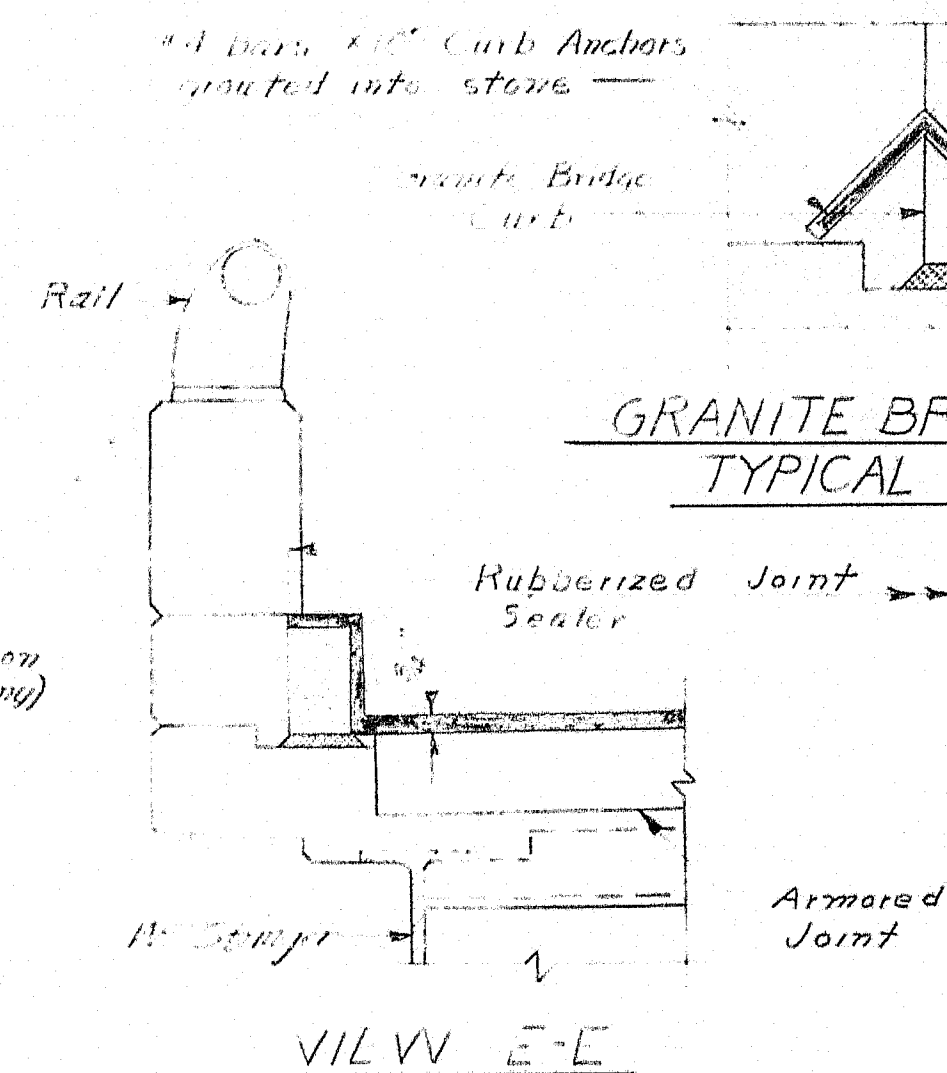 #4 bars x 10" Curb Anchors
grouted into stone
Granite Bridge
Curb
Rail
GRANITE BR
TYPICAL
Rubberized Joint
Sealer
on
ng)
Armored
Joint
Stringer
VIEW E-E